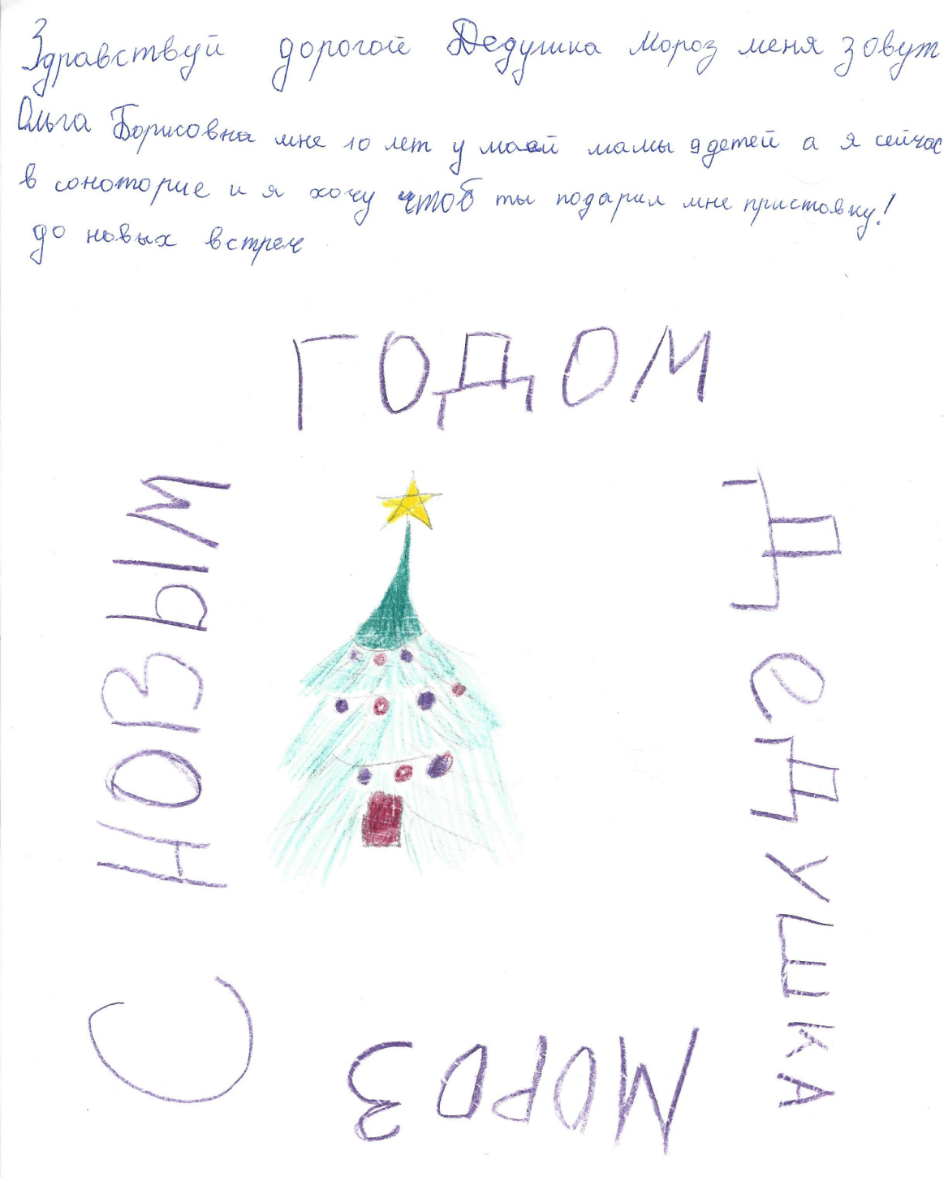 Здравствуй дорогой Дедушка Мороз меня зовут
Ольга Борисовна мне 10 лет у маей мамы 9 детей а я сейчас
в соноторие и я хочу чтоб ты подарил мне пристовку!
до новых встреч
С НОВЫМ
ГОДОМ
ДЕДУШКА
МОРОЗ